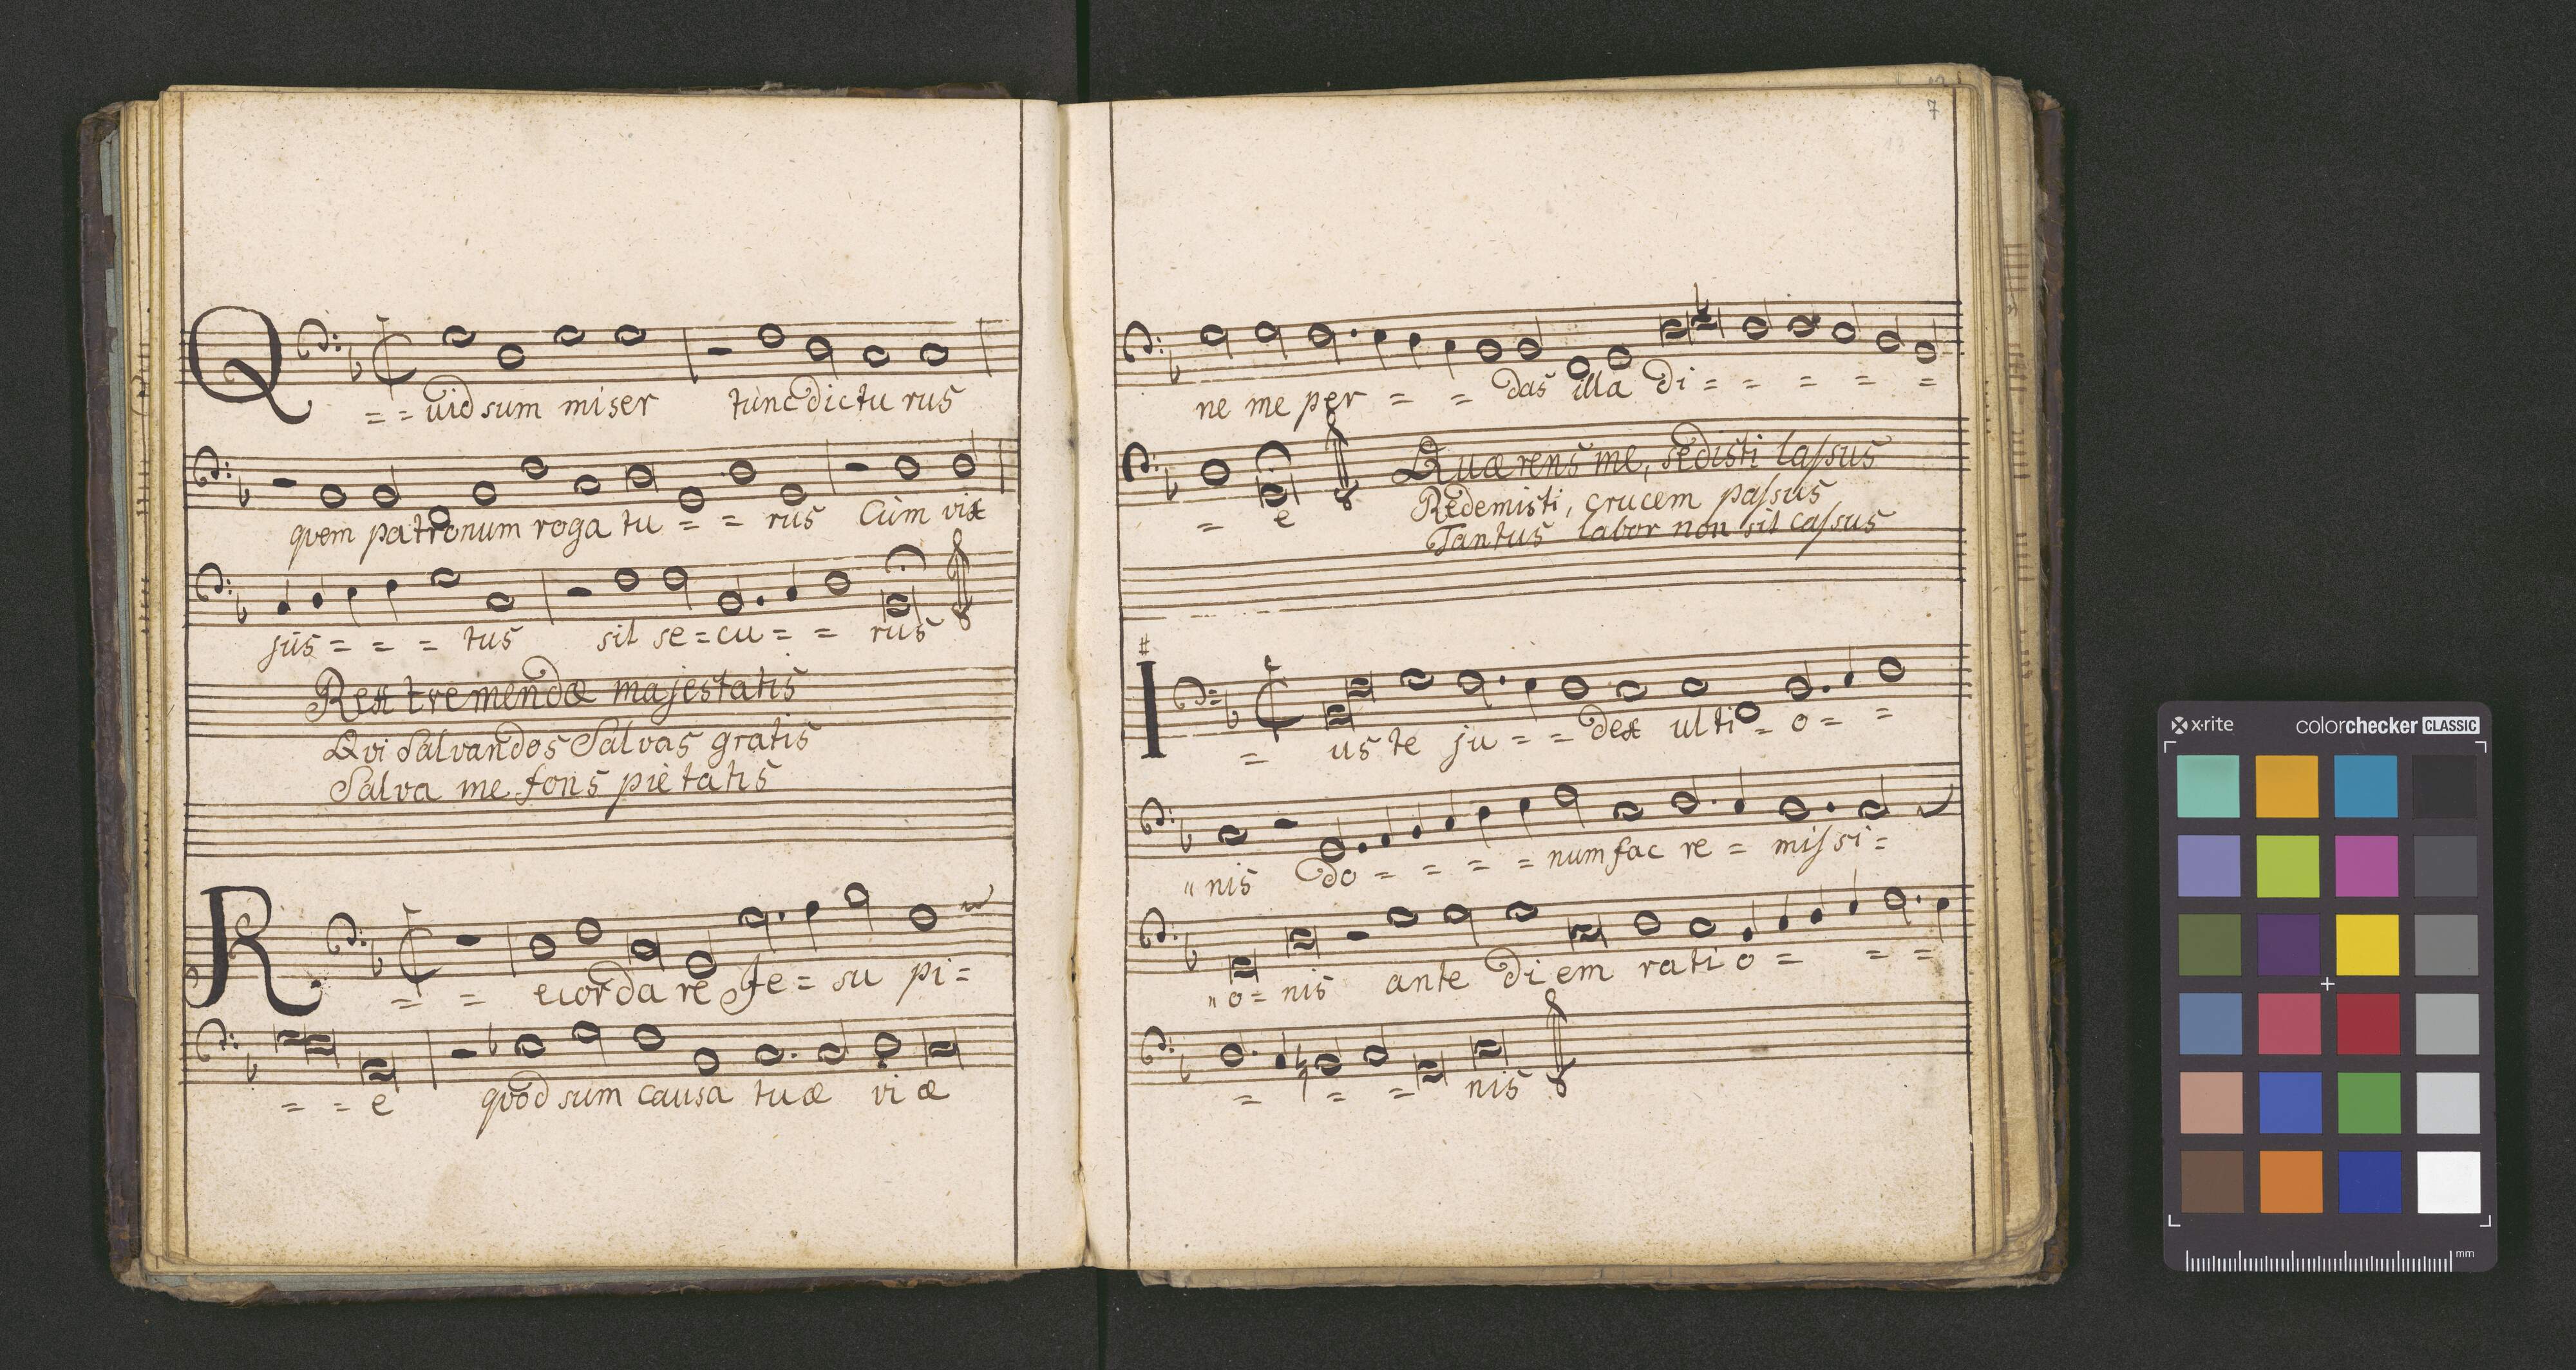 Q = = uid sum miser tunc dictu rus
quem patronum roga tu = = rus Cùm vix
jus = = = tus sit se = cu = = rus
Rex tremendæ majestatis
Qvi Salvandos Salvas gratis
Salva me fons pietatis
R = = ecorda re Je = su pi =
= = e quod sum causa tuæ vi æ
7
ne me per = = das illa di = = = = =
= e Quærens me, sedisti lassus
Redemisti, crucem passus
Tantus labor non sit cassus
I = us te ju = = dex ulti = o = =
" nis do = = = = num fac re = missi =
" o = nis ante di em rati o = = =
= = = nis
x·rite colorchecker CLASSIC
mm